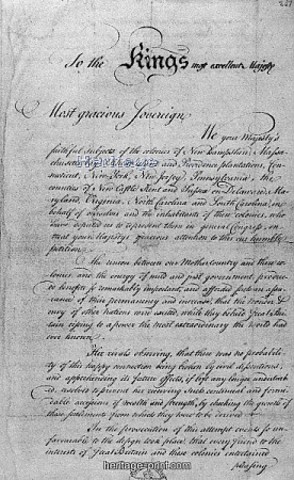 221
To the Kings most excellent Majesty
Most gracious Sovereign
We your Majesty's
faithful subjects of the colonies of New Hampshire, Massa-
chusetts and Providence plantations, Con-
necticut, New-York, New Jersey, Pennsylvania, the
counties of New Castle Kent and Sussex on Delaware, Ma-
ryland, Virginia, North Carolina and South Carolina in
behalf of ourselves and the inhabitants of these colonies, who
have deputed us to represent them in general Congress, en-
treat your Majesty's gracious attention to this our humble
petition.
The union between our Mother Country and these co-
lonies, and the energy of mild and just government produc-
ed benefits so remarkably important, and afforded such an assu-
rance of their permanency and increase, that the wonder &
envy of other nations were excited, while they beheld Great Bri-
tain rising to a power the most extraordinary the world had
ever known.
Her rivals observing, that there was no probabi-
lity of this happy connection being broken by civil dissentions,
and apprehending its future effects, if left any longer undisturb-
ed, resolved to prevent her receiving such continual and formi-
dable accessions of wealth and strength, by checking the growth of
these settlements from which they were to be derived.
In the prosecution of this attempt events so un-
favourable to the design took place, that every friend to the
interest of Great Britain and these colonies entertained
pleasing
heritage-print.com